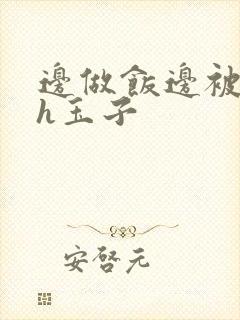 邊做飯邊被
h玉子
安啓元